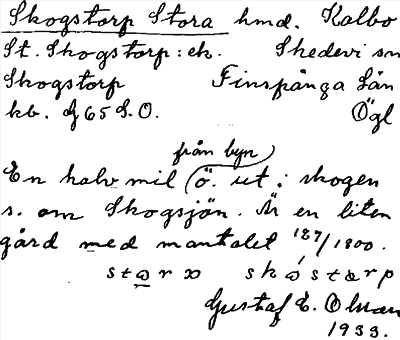 Skogstorp Stora hmd. Kalbo
St. Skogstorp: ek. Skedevi sn
Skogstorp Finspånga Län
kb. 65 S.O. Ögl
från byn
En halv mil ö. ut i skogen
s. om Skogsjön. Är en liten
gård med mantalet 187/1800.
Gustaf E. Olman
1933.